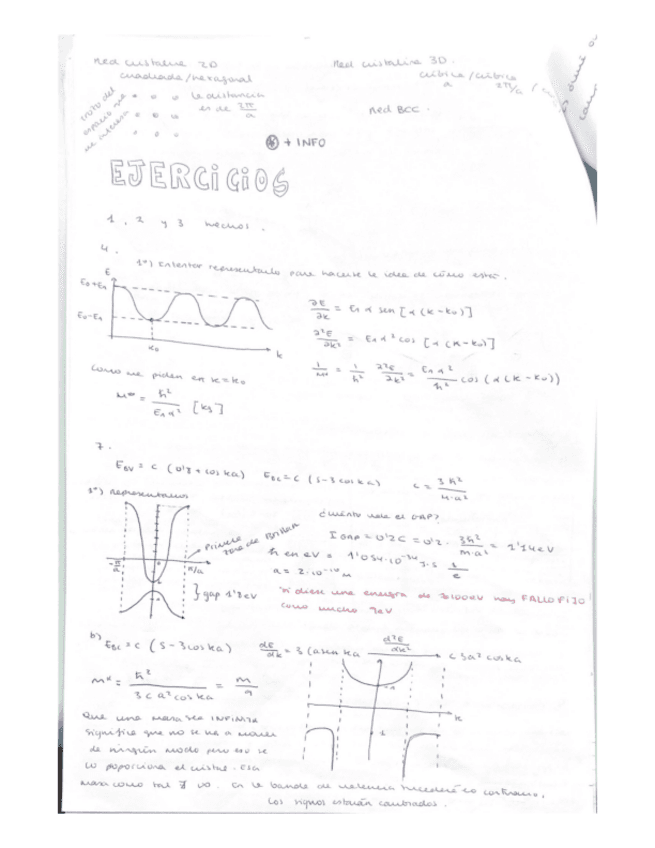 Red cristalina 2D
cuadrada/hexagonal
Red cristalina 3D.
cúbica/cúbica
a 2π/a
la distancia
es de 2π/a
Red BCC.
+ INFO
EJERCICIOS
1, 2 y 3 hechos.
4.
1º) Intentar representarlo para hacerse la idea de cómo está.
E
E0+E1
E0-E1
K0
k
∂E/∂k = E1 α sen [α(k-k0)]
∂²E/∂k² = E1 α² cos [α(k-k0)]
1/m* = 1/ħ² ∂²E/∂k² = E1 α²/ħ² cos (α(k-k0))
Como me piden en k=k0
m* = ħ²/E1α² [kg]
7.
EBV = C (0'8+cos ka) EBC = C (5-3cos ka) C = 3ħ²/4·a²
1º) Representamos
Primera
zona de Brillouin
π/a
} gap 1'8eV
¿Cuánto vale el GAP?
I GAP = 0'2C = 0'2 · 3ħ²/m·a² = 1'14eV
ħ en eV = 1'054·10⁻³⁴ J·s 1/e
a = 2·10⁻¹⁰ m
Si diese una energía de 20100eV hay FALLO FIJO
como mucho 7eV
b) EBC = C (5-3cos ka) dE/dk = 3Ca sen ka d²E/dk² C 3a² cos ka
m* = ħ²/3Ca² cos ka = m/9
k
Que una masa sea INFINITA
significa que no se va a mover
de ningún modo pero eso se
lo proporciona el cristal. Esa
masa como tal ∄ no. En la banda de valencia sucederá lo contrario,
los signos estarán cambiados.